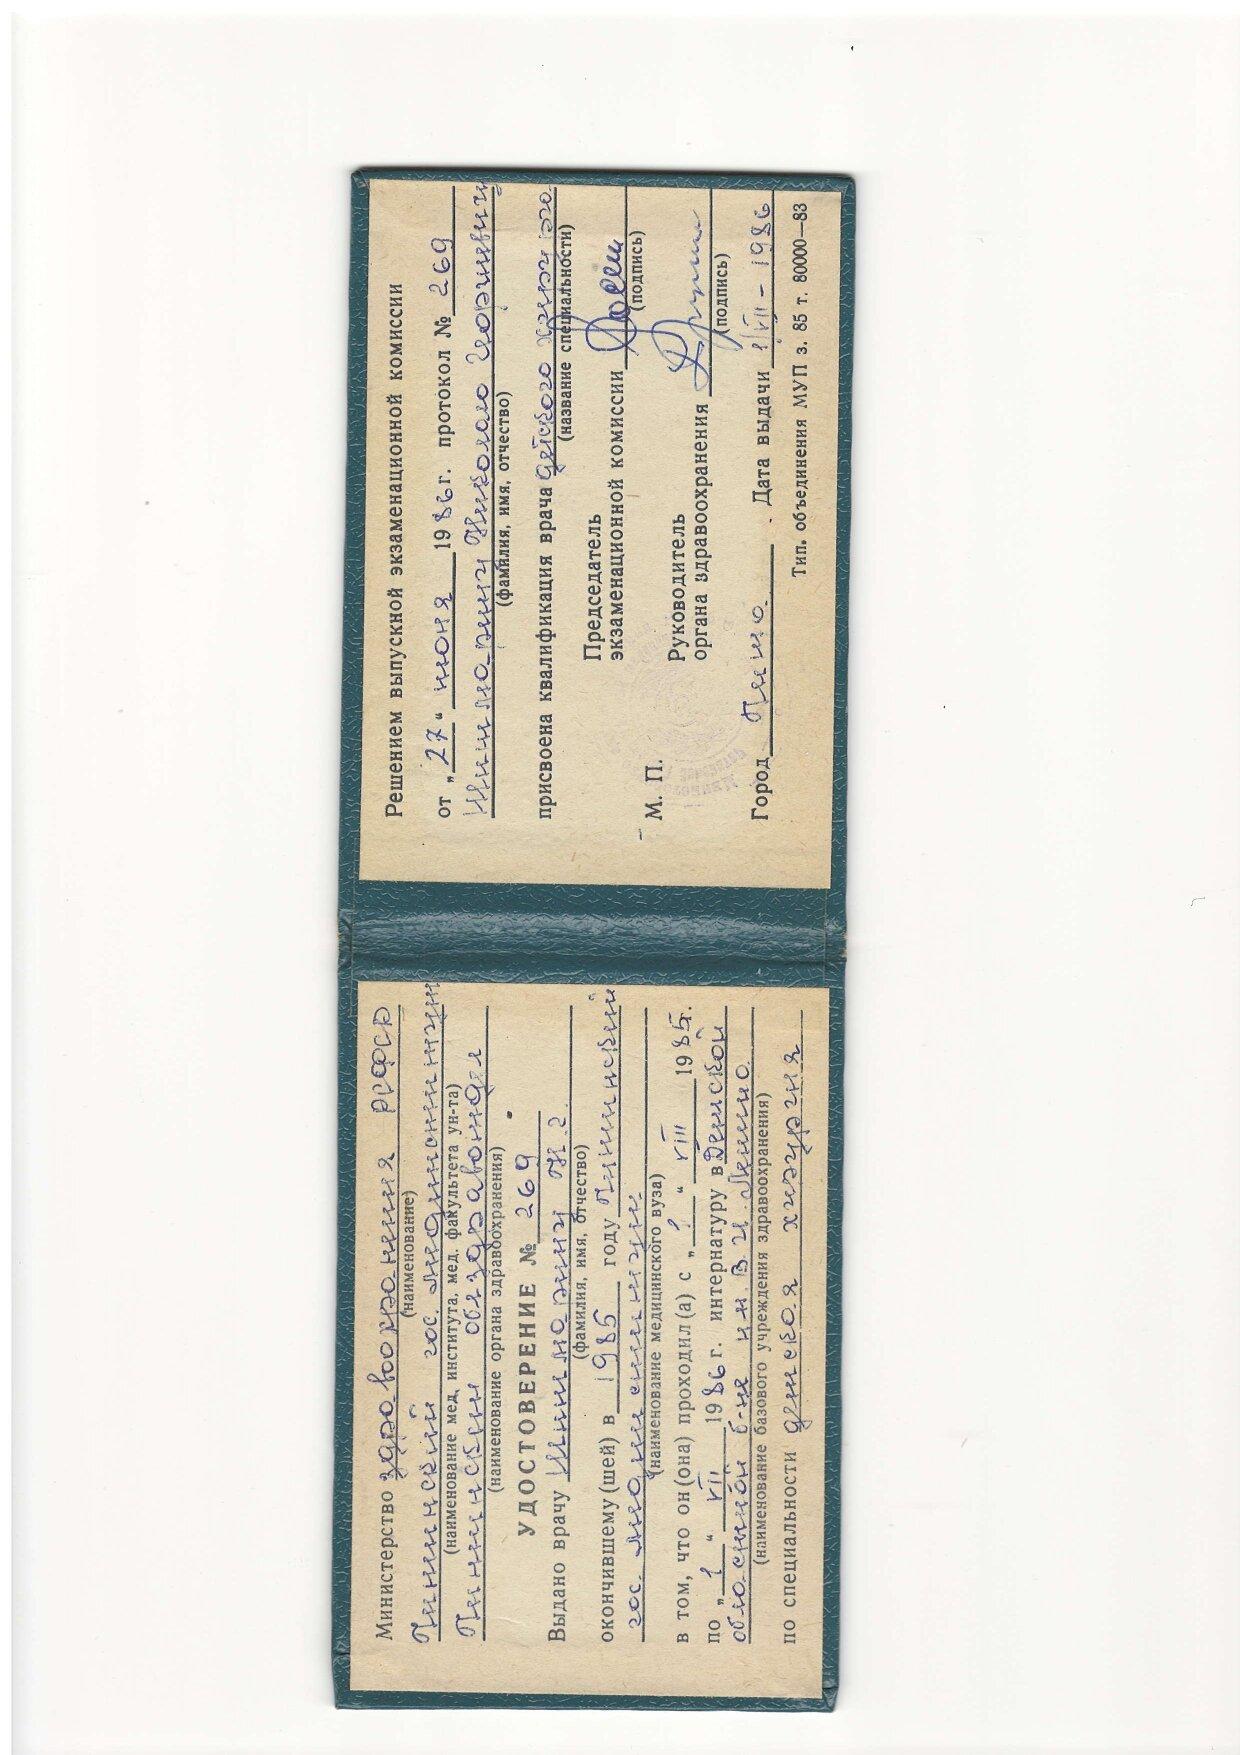 Министерство здравоохранения РСФСР
(наименование)
гос. мединститут
(наименование мед. института, мед. факультета ун-та)
облздравотдел
(наименование органа здравоохранения)
УДОСТОВЕРЕНИЕ № 269
Выдано врачу
(фамилия, имя, отчество)
окончившему(шей) в 1985 году
гос.
(наименование медицинского вуза)
в том, что он (она) проходил(а) с „1“ VIII 1985.
по „1“ VII 1986 г. интернатуру в Детской
областной б-це
(наименование базового учреждения здравоохранения)
по специальности детская хирургия
Решением выпускной экзаменационной комиссии
от „27“ июня 1986 г. протокол № 269
(фамилия, имя, отчество)
присвоена квалификация врача детского
(название специальности)
Председатель
экзаменационной комиссии
(подпись)
М. П.
Руководитель
органа здравоохранения
(подпись)
Город Дата выдачи 1/VII - 1986
Тип. объединения МУП з. 85 т. 80000—83